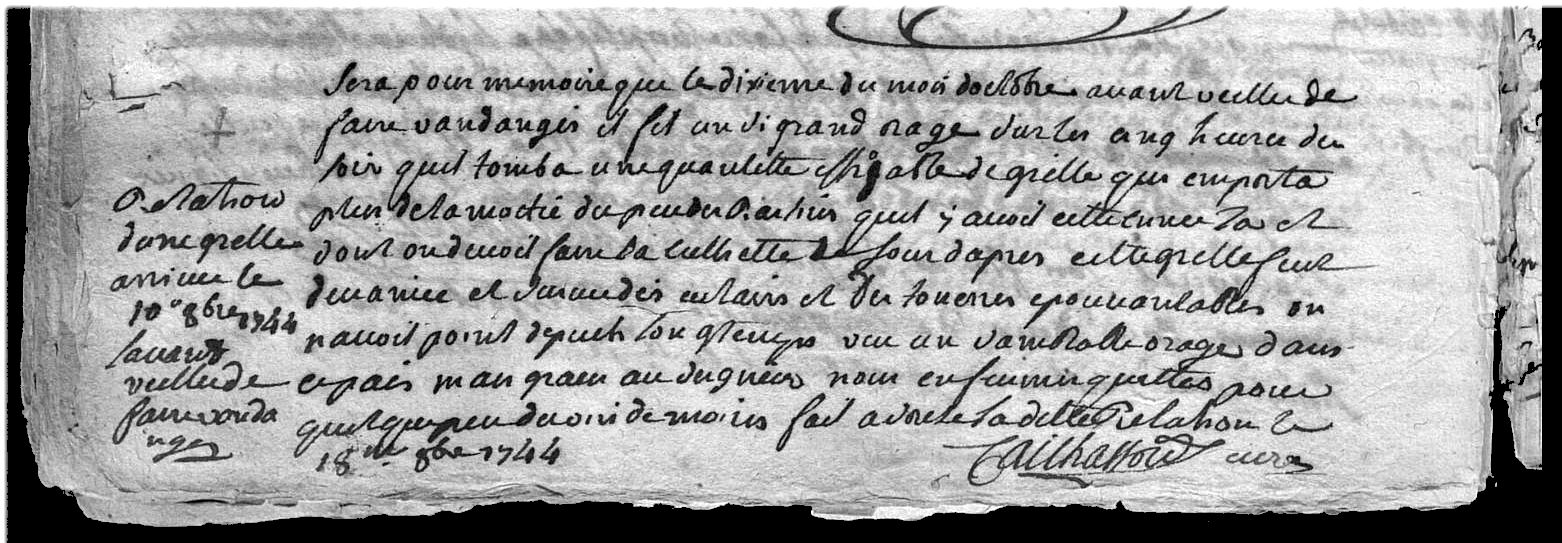 sera pour memoire que le dixieme du mois doctobre avant veille de
faire vandanges il fit un si grand orage sur les cinq heures du
soir quil tomba une quantitte effroiable de grelle qui emporta
plus de la moetié du peu de raisins quil y avoit cette annee la et
dont on devoit faire la culhette le jour dapres cette grelle feut
devancee et suivie des eclairs et des tonerres epouvantables on
navoit point depuis longtemps veu un samblable orage dans
ce pais mais graces au seigneur nous en feumes quittes pour
quelque peu de vin de moins fait a la ditte Relation le
18me 8bre 1744
curé
Relation
dune grelle
arrivee le
10e 8bre 1744
lavant
veille de
faire vanda
nges